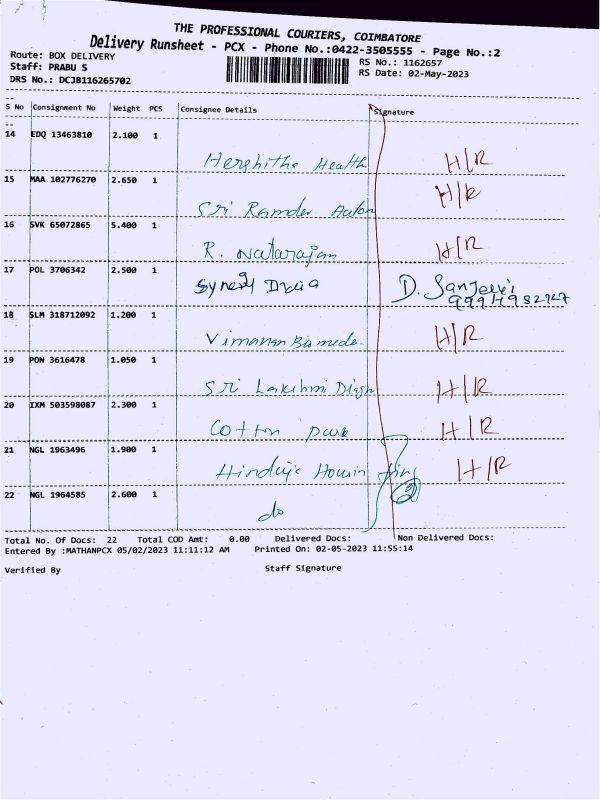 THE PROFESSIONAL COURIERS, COIMBATORE
Delivery Runsheet - PCX - Phone No.:0422-3505555 - Page No.:2
Route: BOX DELIVERY
RS No.: 1162657
Staff: PRABU S
RS Date: 02-May-2023
DRS No.: DCJB116265702
S No Consignment No Weight PCS Consignee Details Signature
14 EDQ 13463810 2.100 1
Herehitha Health H/R
15 MAA 102776270 2.650 1
Sri Ramdev Auton H/R
16 SVK 65072865 5.400 1
R. Natarajan H/R
17 POL 3706342 2.500 1
Synergy D. Sanjeevi
18 SLM 318712092 1.200 1
Vimanan Biomede H/R
19 PON 3616478 1.050 1
Sri Lakshmi H/R
20 IXM 503598087 2.300 1
Cotton Park H/R
21 NGL 1963496 1.900 1
Hinduje Housin H/R
22 NGL 1964585 2.600 1
do
Total No. Of Docs: 22 Total COD Amt: 0.00 Delivered Docs: Non Delivered Docs:
Entered By :MATHANPCX 05/02/2023 11:11:12 AM Printed On: 02-05-2023 11:55:14
Verified By Staff Signature